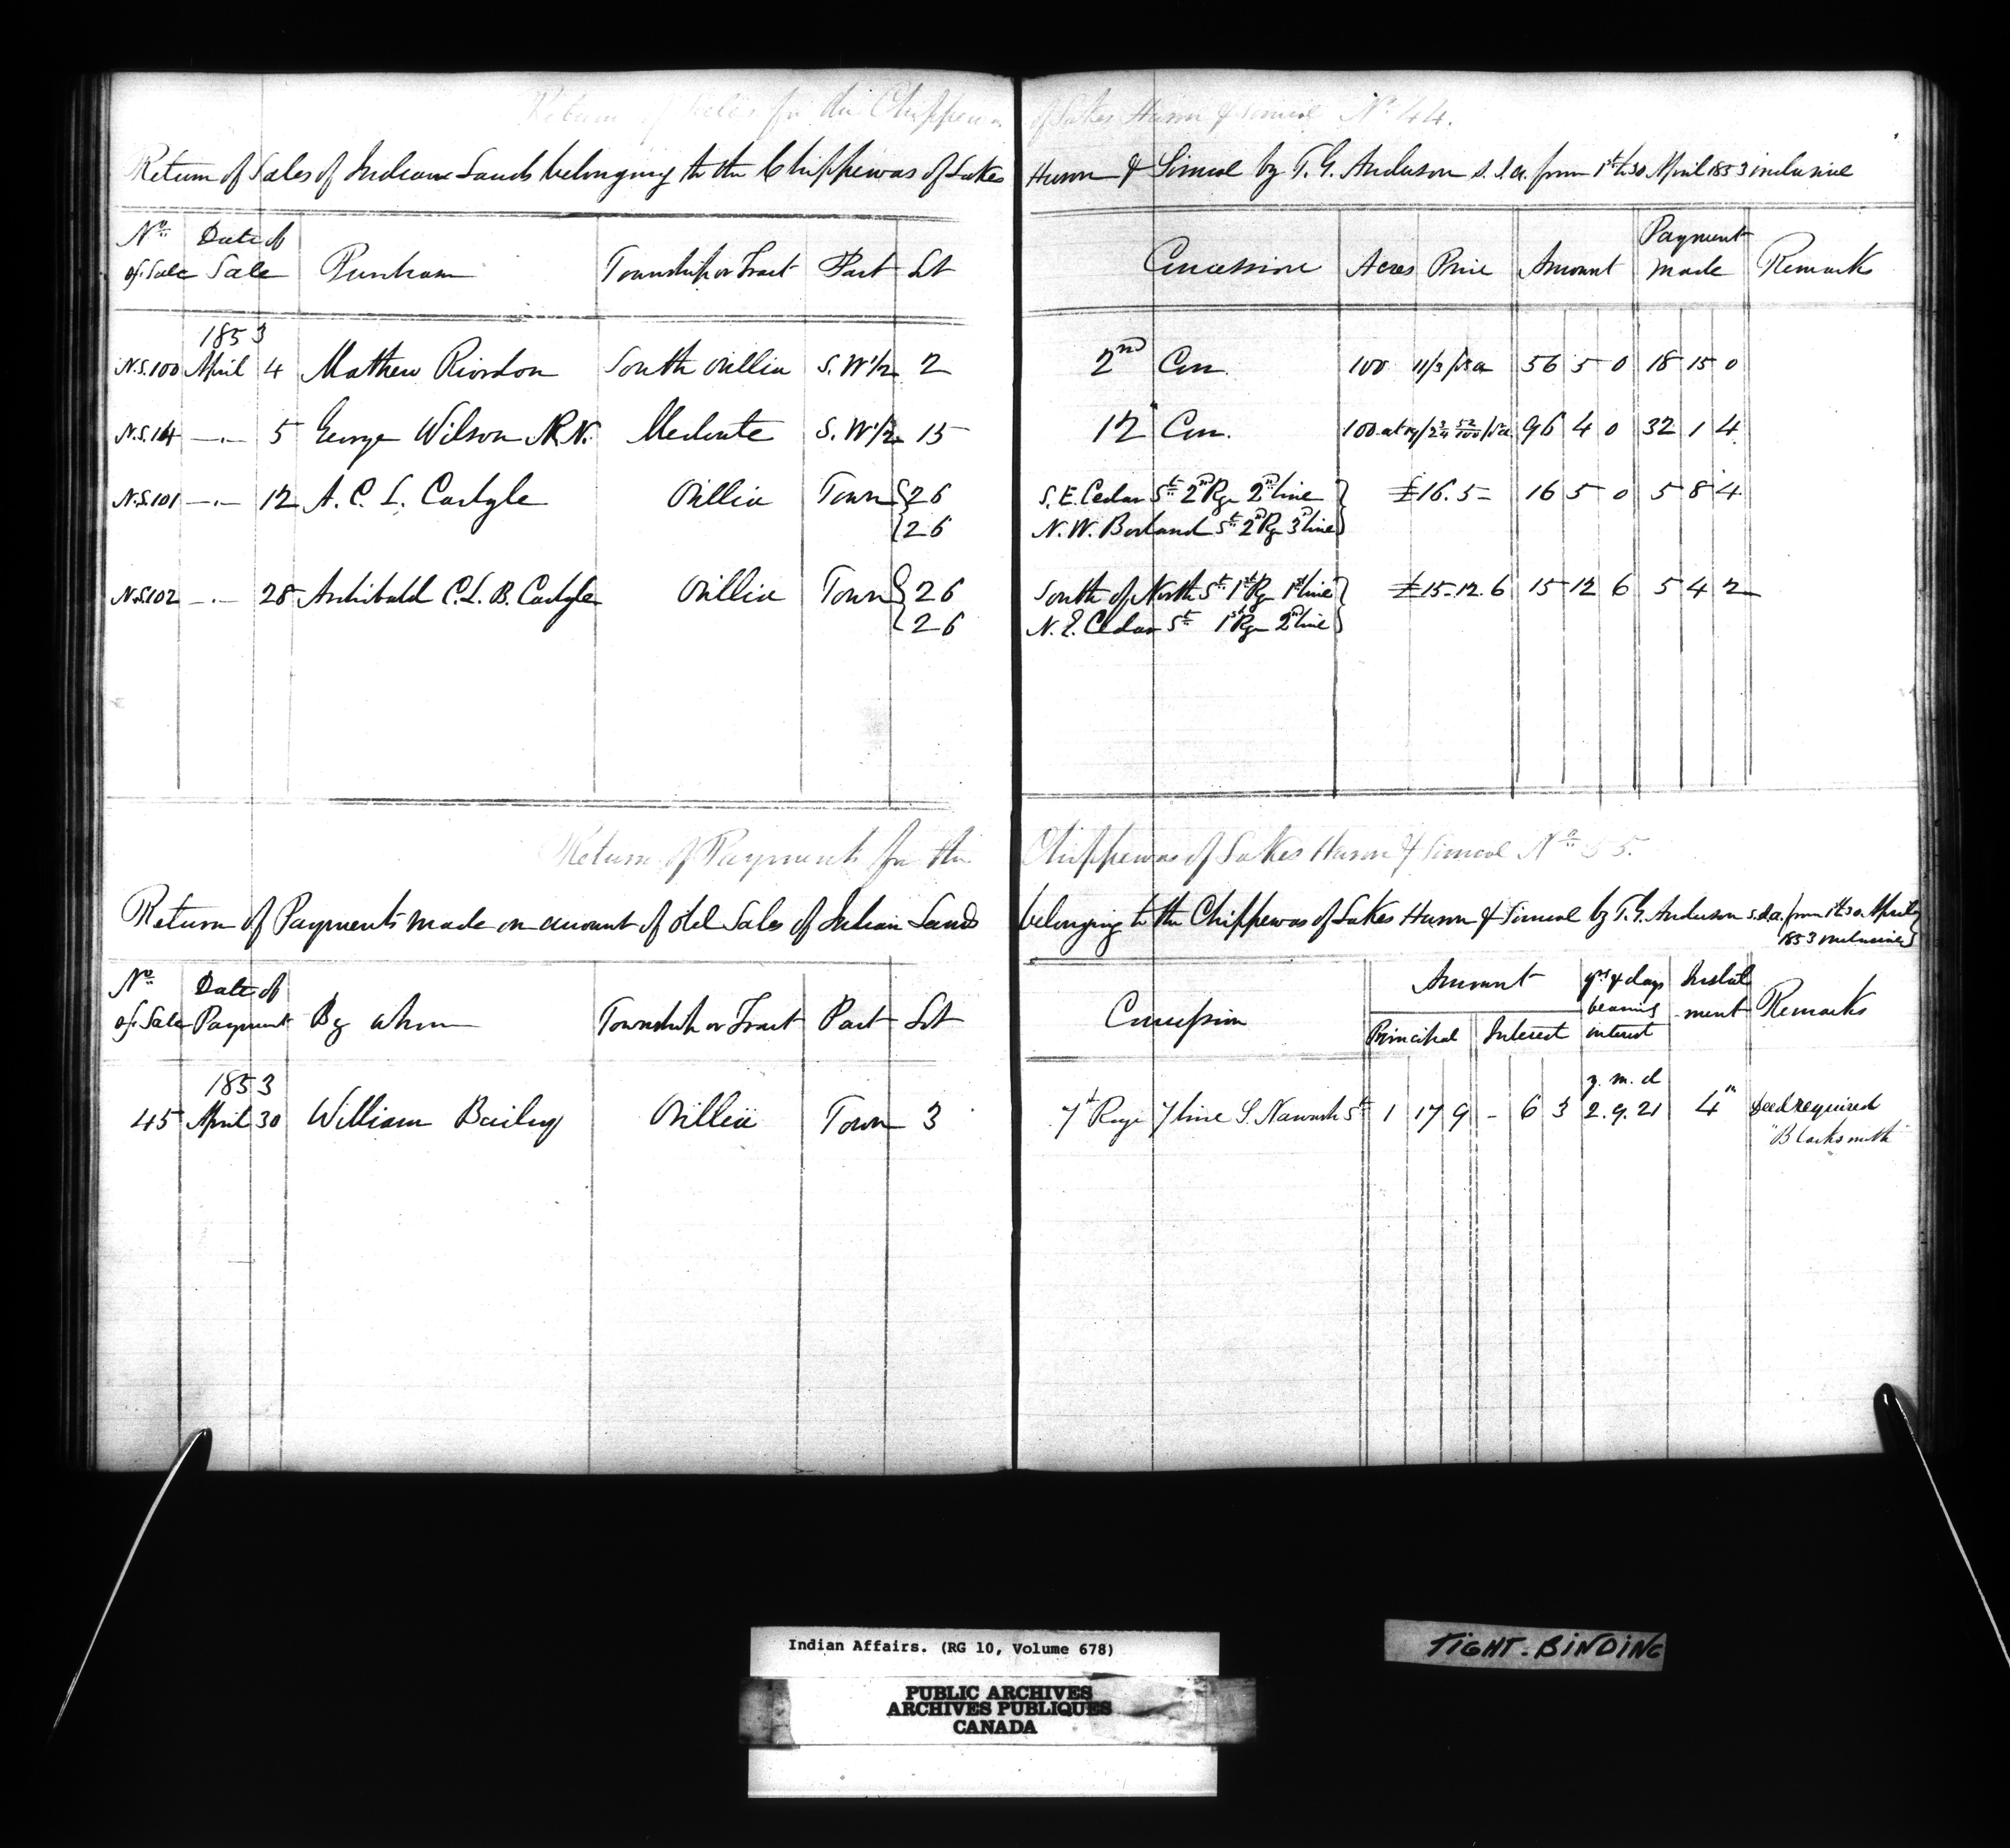 Return of Sales for the Chippewas of Lakes Huron & Simcoe No. 44.
Return of Sales of Indian Lands belonging to the Chippewas of Lakes Huron & Simcoe by T. G. Anderson S.I.A. from 1st to 30 April 1853 inclusive
No. of Sale | Date of Sale | Purchaser | Township or Tract | Part | Lot | Concession | Acres | Price | Amount | Payment made | Remarks
1853
N.S. 100 April 4 Mathew Riordon South Orillia S. W 1/2 2 2nd Con. 100 11/3 pr a 56 5 0 18 15 0
N.S. 14 —"— 5 George Wilson R.N. Medonte S. W 1/2 15 12" Con. 100 at 19/2 3/4 52/100 pr a 96 4 0 32 1 4
N.S. 101 —"— 12 A. C. L. Carlyle Orillia Town { 26 S. E. Cedar St. 2nd Rge 2nd line } £16. 5 – 16 5 0 5 8 4
{ 26 N. W. Borland St. 2nd Rg 3rd line }
N.S. 102 —"— 28 Archibald C. L. B. Carlyle Orillia Town { 26 South of North St. 1st Rg 1st line } £15. 12. 6 15 12 6 5 4 2
{ 26 N. E. Cedar St. 1st Rge 2nd line }
Return of Payments for the Chippewas of Lakes Huron & Simcoe No. 55.
Return of Payments made on account of old Sales of Indian Lands belonging to the Chippewas of Lakes Huron & Simcoe by T. G. Anderson S.I.A. from 1st to 30 April
1853 inclusive
No. of Sale | Date of Payment | By whom | Township or Tract | Part | Lot | Concession | Amount Principal | Interest | yrs & days bearing interest | Instalment | Remarks
1853 y. m. d
45 April 30 William Bailey Orillia Town 3 7th Rage 7 line S. Nawash St 1 17 9 – 6 3 2. 9. 21 4th Deed required
"Blacksmith"
Indian Affairs. (RG 10, Volume 678)
PUBLIC ARCHIVES
ARCHIVES PUBLIQUES
CANADA
TIGHT-BINDING